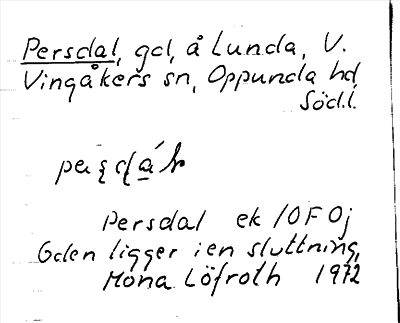 Persdal, gd, å Lunda, V.
Vingåkers sn, Oppunda hd,
Södl.
Persdal ek 10F0j
Gden ligger i en sluttning,
Mona Löfroth 1972